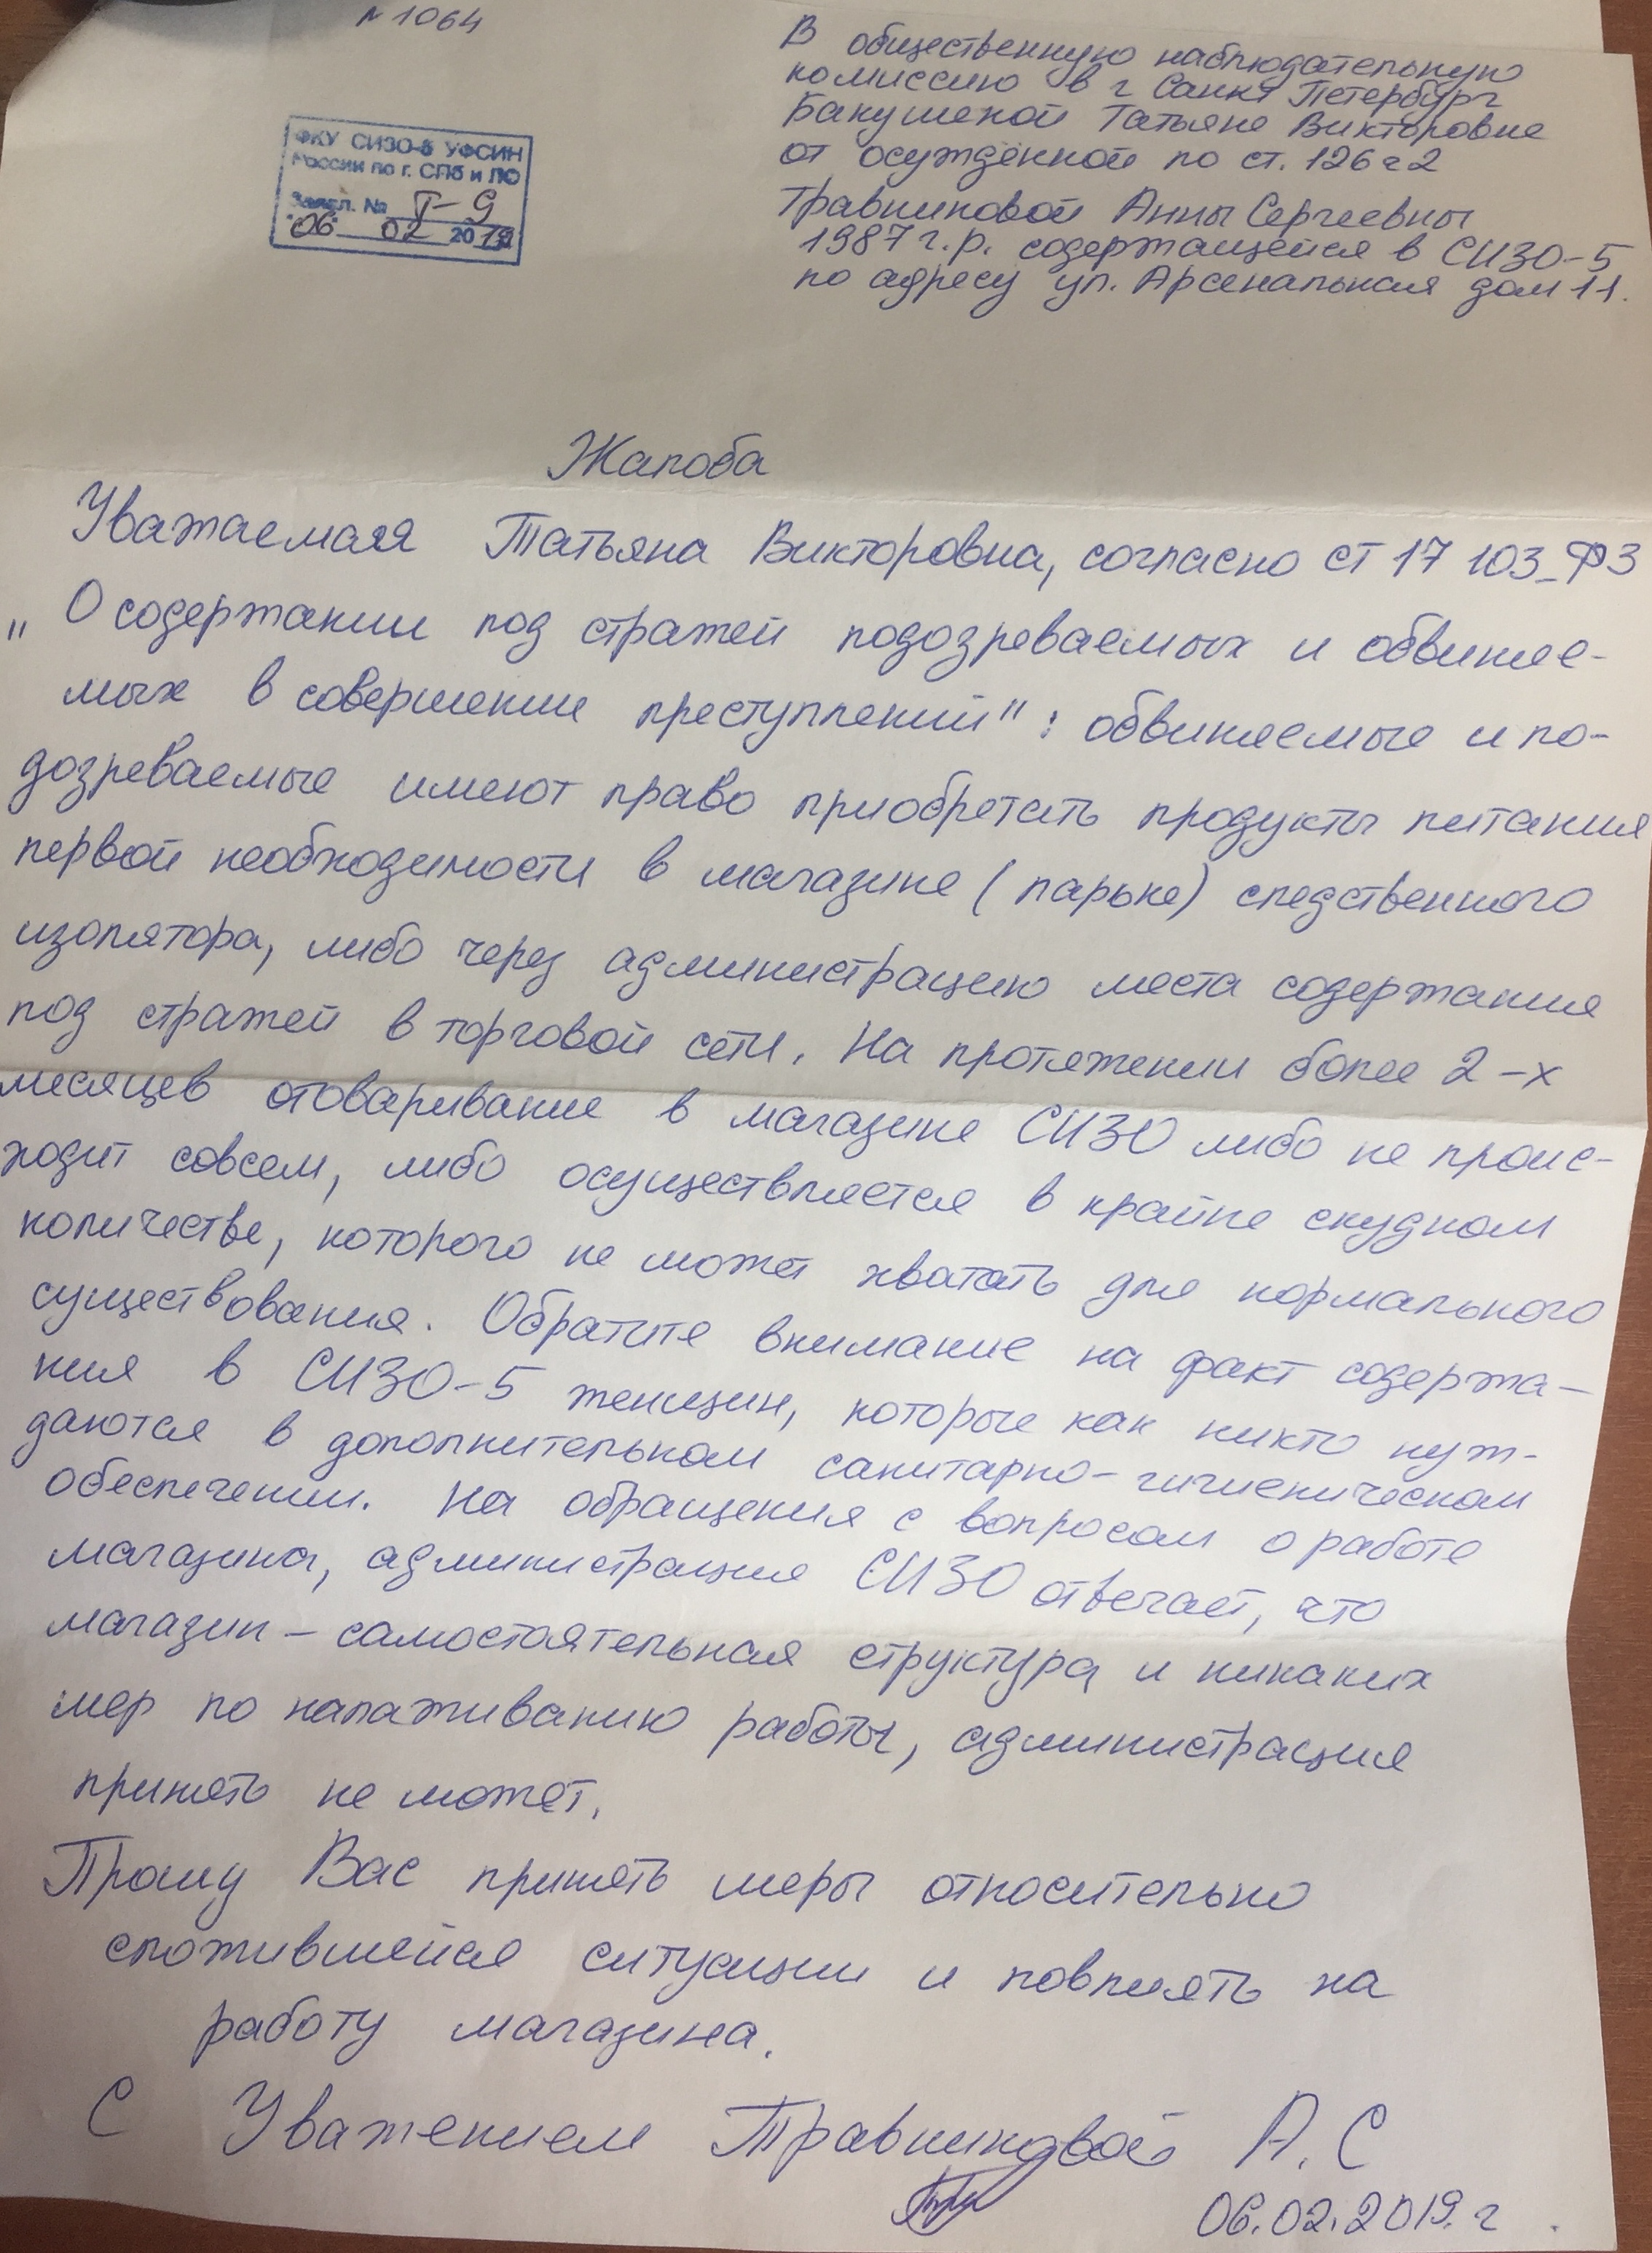 N 1064
В общественную наблюдательную
комиссию в г Санкт Петербург
Бакушеной Татьяне Викторовне
от осуждённой по ст. 126 ч 2
Травниковой Анны Сергеевны
1987 г.р. содержащейся в СИЗО-5
по адресу ул. Арсенальная дом 11.
ФКУ СИЗО-5 УФСИН
России по г. СПб и ЛО
Заявл. № Т-9
"06" 02 2019
Жалоба
Уважаемая Татьяна Викторовна, согласно ст 17 103-ФЗ
„О содержании под стражей подозреваемых и обвиняе-
мых в совершение преступлений": обвиняемые и по-
дозреваемые имеют право приобретать продукты питания
первой необходимости в магазине (ларьке) следственного
изолятора, либо через администрацию места содержания
под стражей в торговой сети. На протяжении более 2-х
месяцев отоваривание в магазине СИЗО либо не проис-
ходит совсем, либо осуществляется в крайне скудном
количестве, которого не может хватать для нормального
существования. Обратите внимание на факт содержа-
ния в СИЗО-5 женщин, которые как никто нуж-
даются в дополнительном санитарно-гигиеническом
обеспечении. На обращения с вопросом о работе
магазина, администрация СИЗО отвечает, что
магазин - самостоятельная структура и никаких
мер по налаживанию работы, администрация
принять не может.
Прошу Вас принять меры относительно
сложившейся ситуации и повлиять на
работу магазина.
С Уважением Травниковой А.С
06.02.2019.г